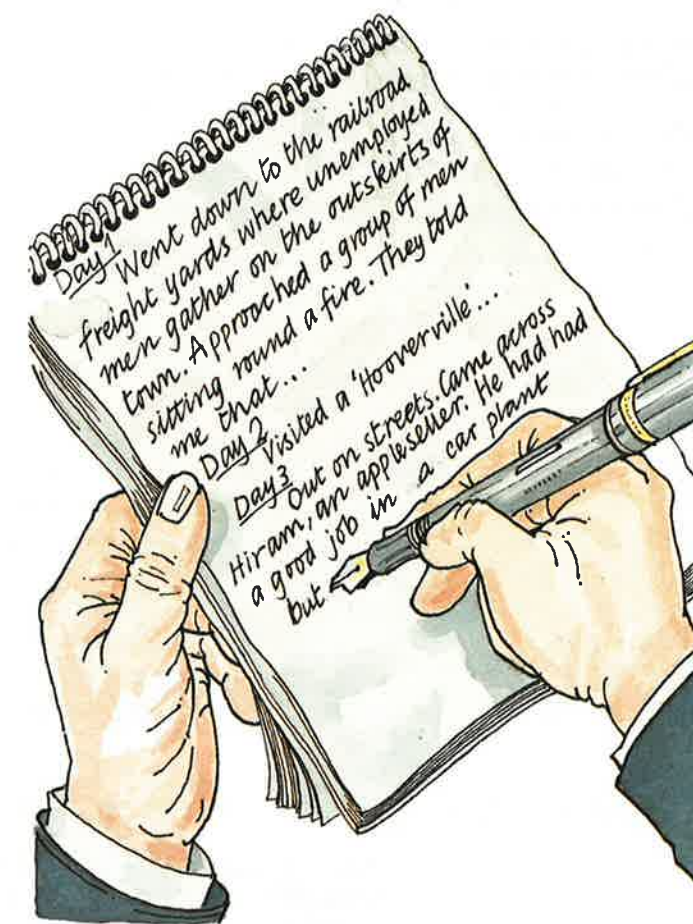 Day 1
Went down to the railroad
freight yards where unemployed
men gather on the outskirts of
town. Approached a group of men
sitting round a fire. They told
me that...
Day 2
Visited a 'Hooverville'...
Day 3
Out on streets. Came across
Hiram, an appleseller. He had had
a good job in a car plant
but